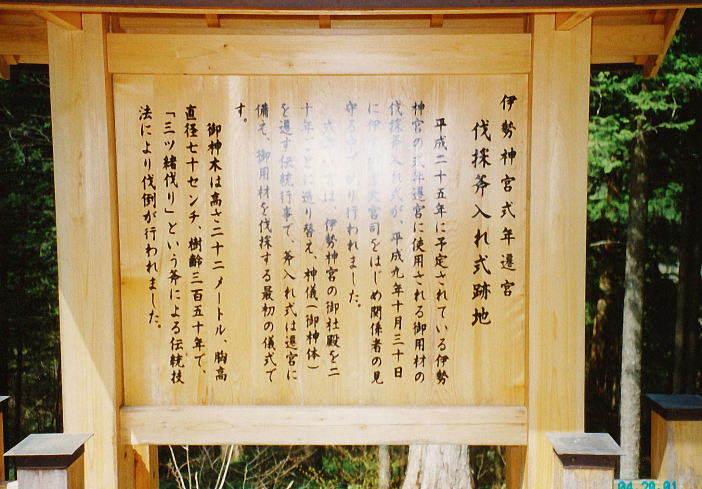 伊勢神宮式年遷宮
伐採斧入れ式跡地
平成二十五年に予定されている伊勢
神宮の式年遷宮に使用される御用材の
伐採斧入れ式が、平成九年十月三十日
に伊 大宮司をはじめ関係者の見
守る中 り行われました。
式 は、伊勢神宮の御社殿を二
十年ごとに造り替え、神儀(御神体)
を遷す伝統行事で、斧入れ式は遷宮に
備え、御用材を伐採する最初の儀式で
す。
御神木は高さ二十二メートル、胸高
直径七十センチ、樹齢三百五十年で、
「三ツ緒伐り」という斧による伝統技
法により伐倒が行われました。
04.29.01